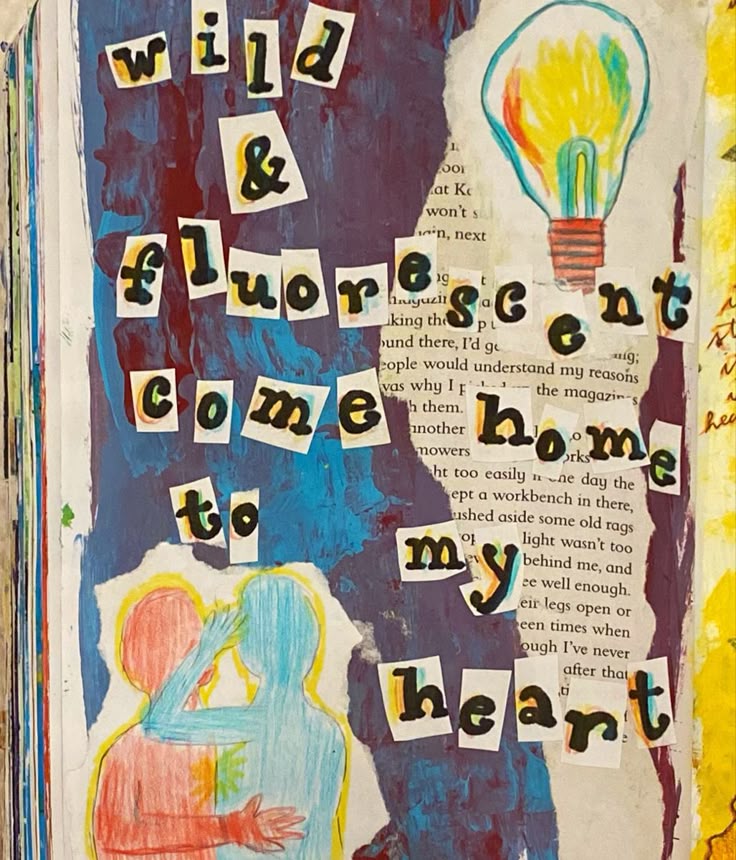 wild
&
fluorescent
come home
to
my
heart
won't
next
king the
ound there, I'd
eople would understand my reasons
was why I the magazines
h them.
another
mowers
ht too easily if one day the
ept a workbench in there,
ushed aside some old rags
light wasn't too
behind me, and
ee well enough.
eir legs open or
een times when
ough I've never
after that